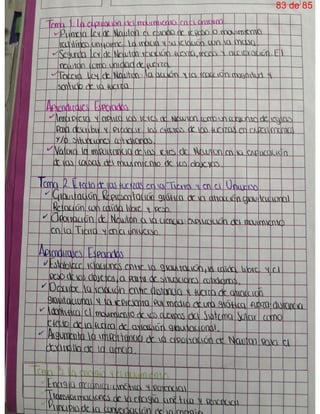 83 de 85
Tema 1. La explicación del movimiento en el entorno
Primera ley de Newton el estado de reposo o movimiento
rectilíneo uniforme. La inercia y su relación con la masa.
Segunda ley de Newton relación fuerza, masa y aceleración. El
newton como unidad de fuerza.
Tercera ley de Newton: la acción y la reacción magnitud y
sentido de la fuerza.
Aprendizajes Esperados
Interpreta y aplica las leyes de Newton como un conjunto de reglas
para describir y predecir los efectos de las fuerzas en experimentos
y/o situaciones cotidianas.
Valora la importancia de las leyes de Newton en la explicación
de las causas del movimiento de los objetos.
Tema 2. Efectos de las fuerzas en la Tierra y en el Universo
Gravitación. Representación gráfica de la atracción gravitacional
Relación con caída libre y peso
Aportación de Newton a la ciencia explicación del movimiento
en la Tierra y en el universo
Aprendizajes Esperados
Establece relaciones entre la gravitación, la caída libre y el
peso de los objetos, a partir de situaciones cotidianas.
Describe la relación entre distancia y fuerza de atracción
gravitacional y la representa por medio de una gráfica fuerza-distancia
Identifica el movimiento de los cuerpos del Sistema Solar como
efecto de la fuerza de atracción gravitacional.
Argumenta la importancia de la aportación de Newton para el
desarrollo de la ciencia.
Tema 3. La energía y el movimiento
Energía mecánica cinética y potencial
Transformaciones de la energía cinética y potencial
Principio de la conservación de la energía